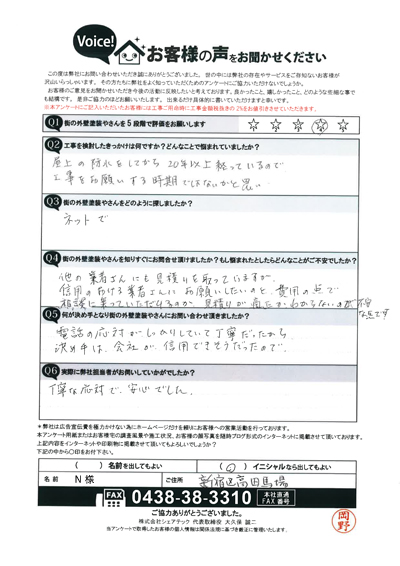 Voice!
お客様の声をお聞かせください
この度は弊社にお問い合わせいただき誠にありがとうございました。世の中には弊社の存在やサービスをご存知ないお客様が
沢山いらっしゃいます。その方たちにも弊社をよく知っていただくためのアンケートにご協力いただけないでしょうか。
お客様のご意見をお聞かせいただき今後の活動に反映したいと考えております。良かったこと、嬉しかったこと、どのような些細な事で
も結構です。是非ご協力のほどお願いいたします。出来るだけ具体的に書いていただけますと幸いです。
※本アンケートにご記入いただいたお客様には工事ご用命時に工事金額税抜きの2%をお値引きさせていただきます。
Q1 街の外壁塗装やさんを5段階で評価をお願いします
Q2 工事を検討したきっかけは何ですか？どんなことで悩まれていました？
屋上の防水をしてから20年以上経っているので
工事をお願いする時期ではないかと思い
Q3 街の外壁塗装やさんをどのように探しましたか？
ネットで
Q4 街の外壁塗装やさんを知りすぐにお問合せ頂けましたか？もし悩まれたとしたらどんなことがご不安でしたか？
他の業者さんにも見積りを取っていますが、
信用のおける業者さんにお願いしたいのと、費用の点で
相談に乗っていただけるのか 見積りが適正かわからないのが不安
な点です
Q5 何が決め手となり街の外壁塗装やさんにお問い合わせ頂きましたか？
電話の応対がしっかりしていて丁寧だったから
決め手は、会社が信用できそうだったので。
Q6 実際に弊社担当者がお伺いしていかがでしたか？
丁寧な応対で、安心でした。
＊弊社は広告宣伝費を極力かけない為にホームページだけを頼りにお客様への営業活動を行っております。
本アンケート用紙またはお客様宅の調査風景や施工状況、お客様の顔写真を随時ブログ形式のインターネットに掲載させて頂いております。
上記内容をインターネットや印刷物に掲載させて頂いてもよろしいでしょうか？
下記の中から〇印をお付け下さい。
（　）名前を出してもよい （○）イニシャルなら出してもよい
名前 N 様 ご住所 新宿区高田馬場
FAX 0438-38-3310 本社直通 FAX番号
ご協力ありがとうございました。
株式会社シェアテック 代表取締役 大久保 誠二
当アンケートで取得したお客様の個人情報は関係法規に基づき厳正に管理いたします。
岡野